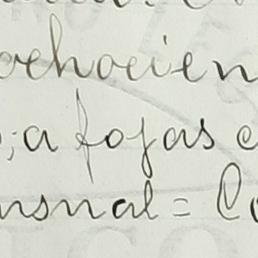 ochocien
; a fojas
nsnal = Co